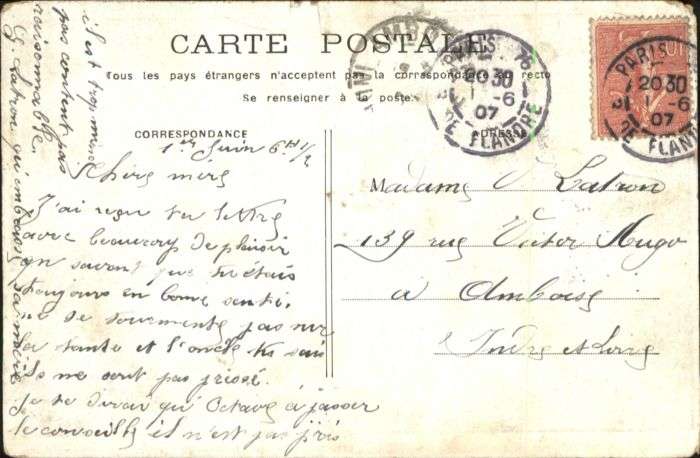 CARTE POSTALE
Tous les pays étrangers n'acceptent pas la correspondance au recto
Se renseigner à la poste
CORRESPONDANCE
ADRESSE
1er Juin 6H 1/2
Chère mère
J'ai reçu ta lettre
avec beaucoup de plaisir
en savant que tu étais
toujours en bonne santé.
ne te tourmente pas sur
la tante et l'oncle tu sais
Je ne sont pas
Je te dirai qu'Octave à
il n'est pas
il est trop
pas content pas
raisonnable.
G Latron qui embrasse sa mère
Madame V Latron
139 rue Victor Hugo
à Amboise
Indre et Loire
PARIS 76
20 30
1 -6
07
R. DE FLANDRE
PARIS
20 30
1 -6
07
DE FLANDRE